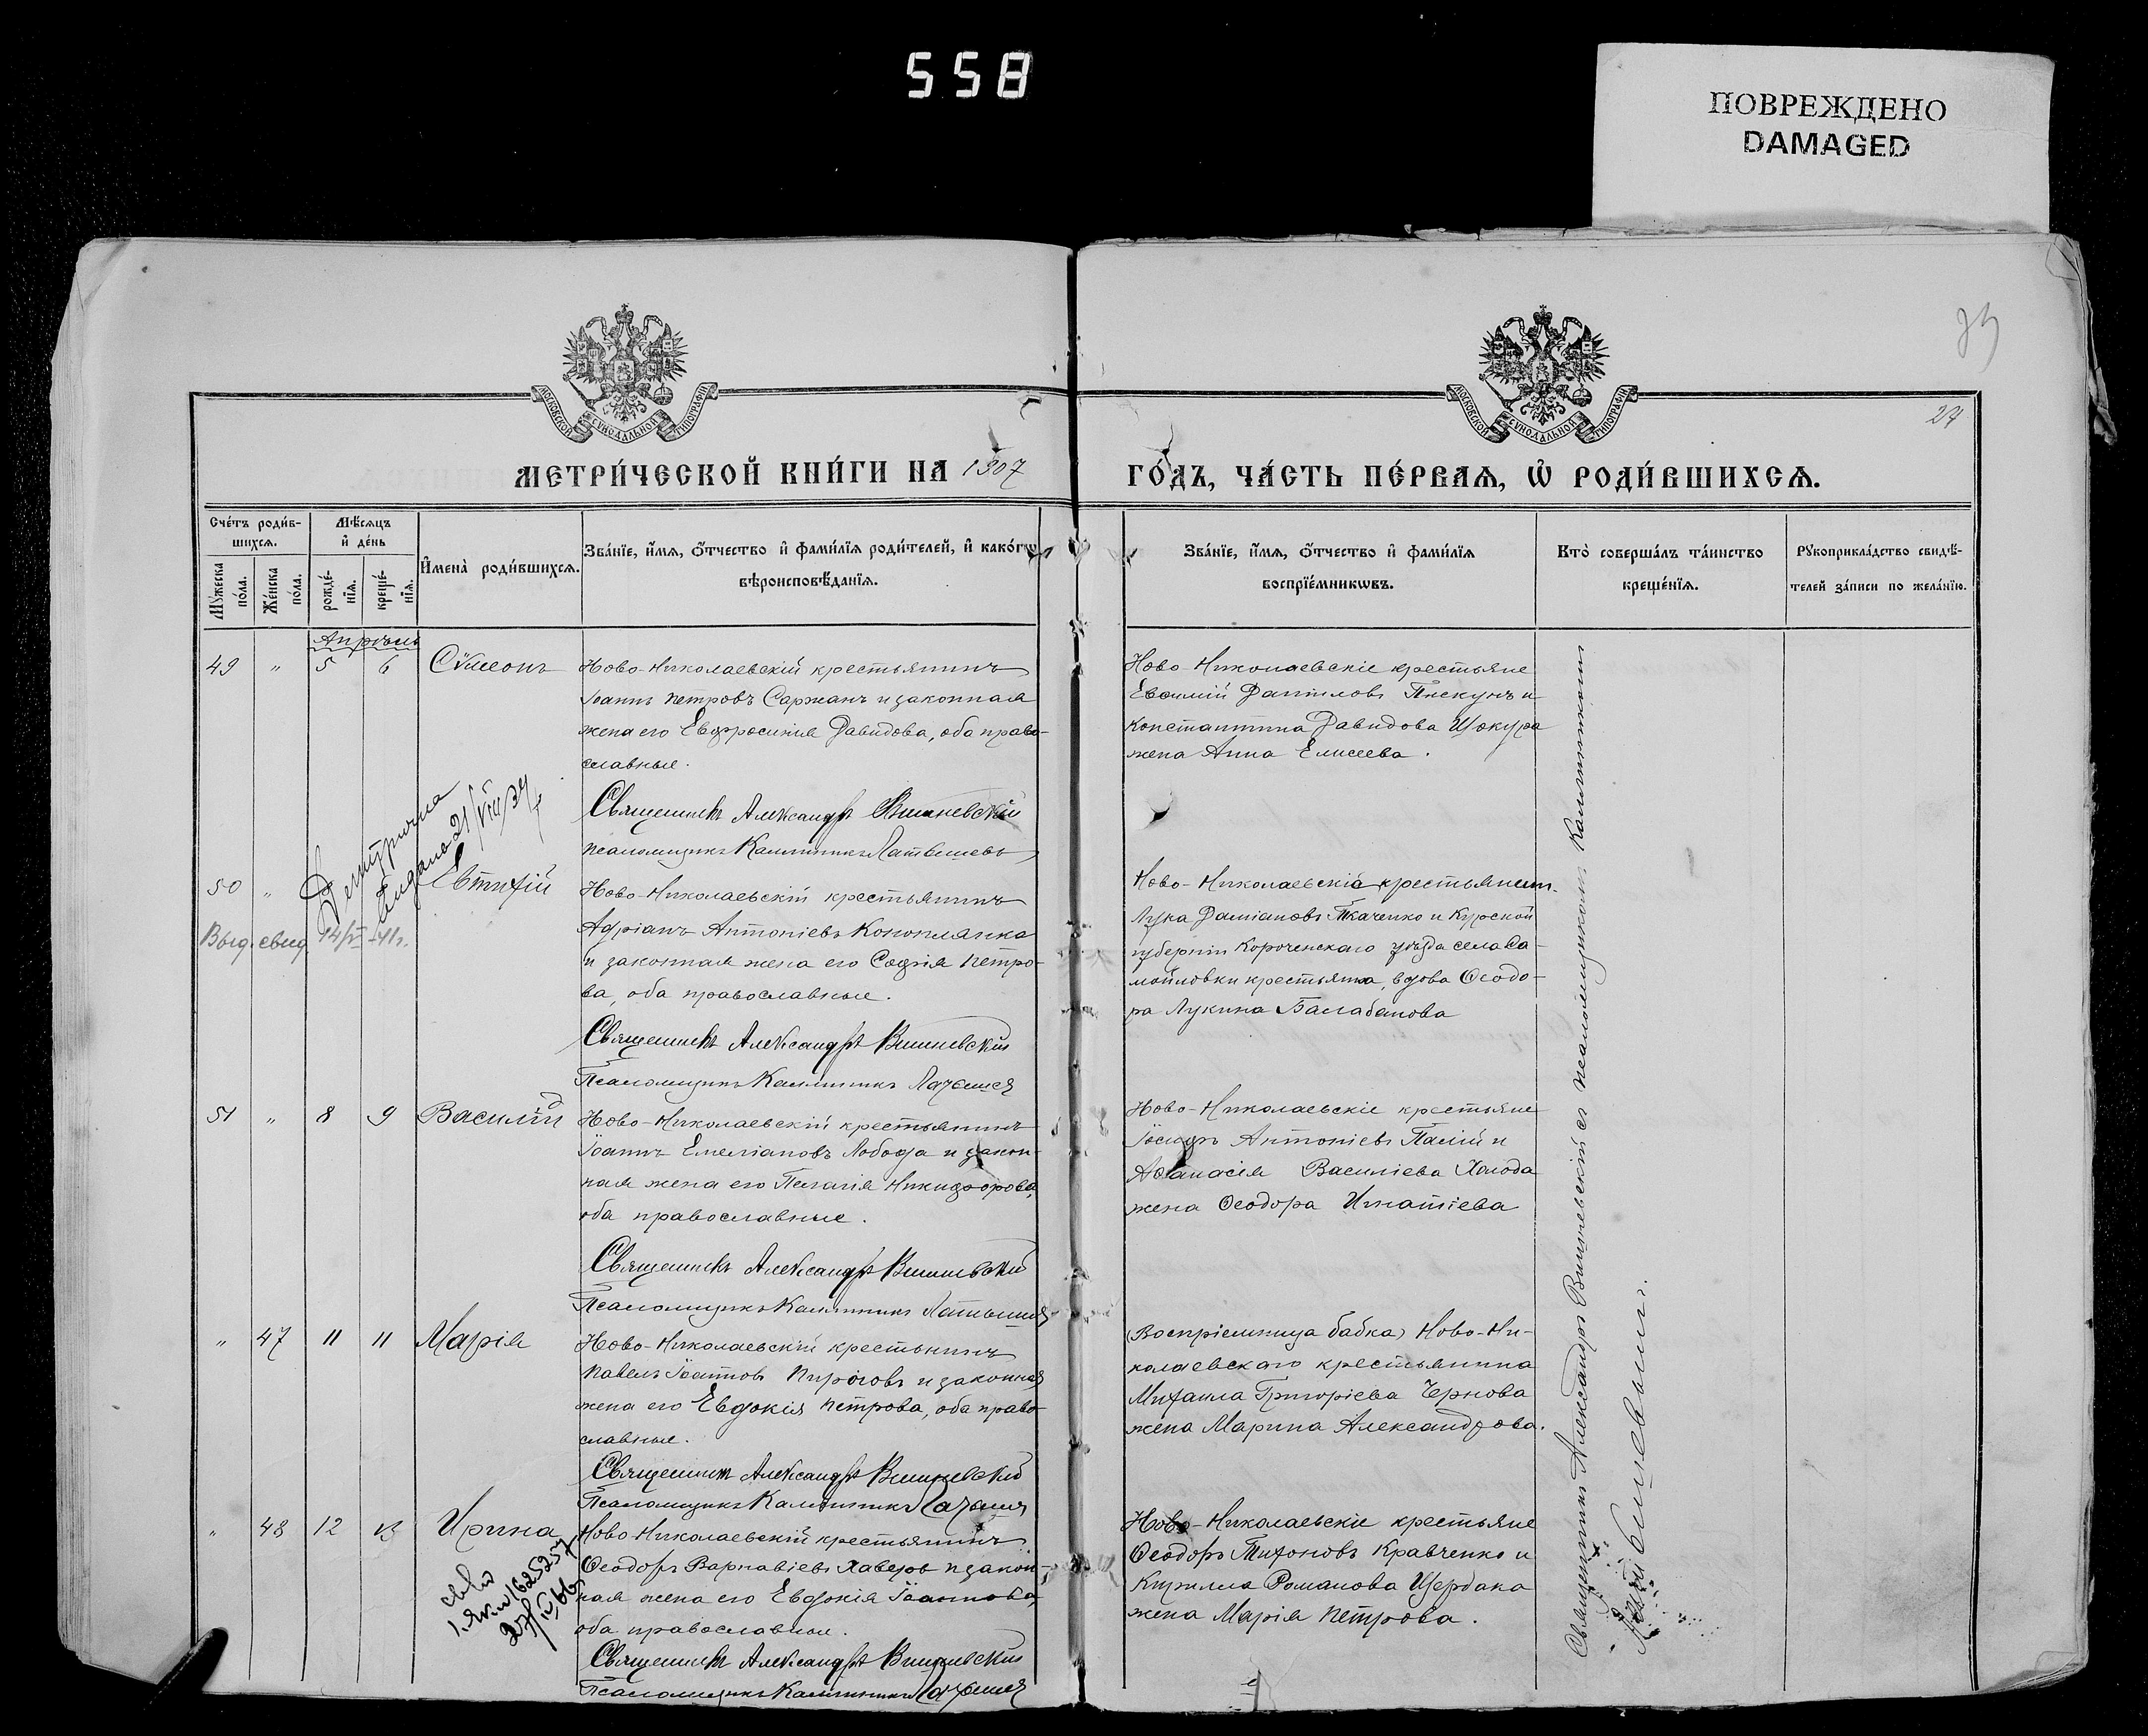 558
ПОВРЕЖДЕНО
DAMAGED
МОСКОВСКОЙ СУНОДАЛЬНОЙ ТИПОГРАФІИ
МОСКОВСКОЙ СУНОДАЛЬНОЙ ТИПОГРАФІИ
27
МЕТРИ́ЧЕСКОЙ КНИ́ГИ НА 1907
ГО́ДЪ, ЧА́СТЬ ПЕ́РВАѦ, Ѡ҆ РОДИ́ВШИХСѦ.
Сче́тъ роди́в-
шихсѧ.
Мꙋ́жеска
по́ла.
Же́нска
по́ла.
Мѣ́сѧцъ
и҆ де́нь
рожде́-
нїѧ.
креще́-
нїѧ.
И҆мена̀ роди́вшихсѧ.
Зва́нїе, и҆́мѧ, ѻ҆́тчество и҆ фами́лїѧ роди́телей, и҆ како́гѡ
вѣроисповѣ́данїѧ.
Зва́нїе, и҆́мѧ, ѻ҆́тчество и҆ фами́лїѧ
воспрїе́мникѡвъ.
Кто̀ соверша́лъ та́инство
креще́нїѧ.
Рꙋкоприкла́дство свидѣ́-
телей за́писи по жела́нїю.
Апрѣль
49 " 5 6 Сѵмеонъ
Ново-Николаевскій крестьянинъ
Іоаннъ Петровъ Саржанъ и законная
жена его Евфросинія Давидова, оба право-
славные.
Священникъ Александръ Вишневскій
Псаломщикъ Каллиникъ
Ново-Николаевскіе крестьяне
Евѳимій Даниловъ Пискунъ и
Константина Давидова Щокура
жена Анна Елисеева.
50 " Евтихій
Выд. свид. 14/ -41г.
Ново-Николаевскій крестьянинъ
Адріанъ Антоніевъ Коноплянка
и законная жена его Софія Петро-
ва, оба православные.
Священникъ Александръ Вишневскій
Псаломщикъ Каллиникъ
Ново-Николаевскій крестьянинъ
Лука Даміановъ Ткаченко и Курской
губерніи Короченскаго уѣзда села Са-
мойловки крестьянка, вдова Ѳеодо-
ра Лукина Балабанова
51 " 8 9 Василій
Ново-Николаевскій крестьянинъ
Іоаннъ Емеліановъ Лобода и закон-
ная жена его Пелагія Никифорова,
оба православные.
Священникъ Александръ Вишневскій
Псаломщикъ Каллиникъ
Ново-Николаевскіе крестьяне
Іосифъ Антоніевъ Палій и
Аѳанасія Василіева Холода
жена Ѳеодора Игнатіева
" 47 11 11 Марія
Ново-Николаевскій крестьянинъ
Павелъ Іоанновъ Пироговъ и законная
жена его Евдокія Петрова, оба право-
славные.
Священникъ Александръ Вишневскій
Псаломщикъ Каллиникъ
(Воспріемница бабка) Ново-Ни-
колаевскаго крестьянина
Михаила Григоріева Чернова
жена Марина Александрова.
" 48 12 13 Ирина
Ново-Николаевскій крестьянинъ
Ѳеодоръ Варнавіевъ и закон-
ная жена его Евдокія Іоаннова,
оба православные.
Священникъ Александръ Вишневскій
Псаломщикъ Каллиникъ
Ново-Николаевскіе крестьяне
Ѳеодоръ Тихоновъ Кравченко и
Кирилла Романова Щербака
жена Марія Петрова.
Священникъ Александръ Вишневскій съ псаломщикомъ Каллиникомъ